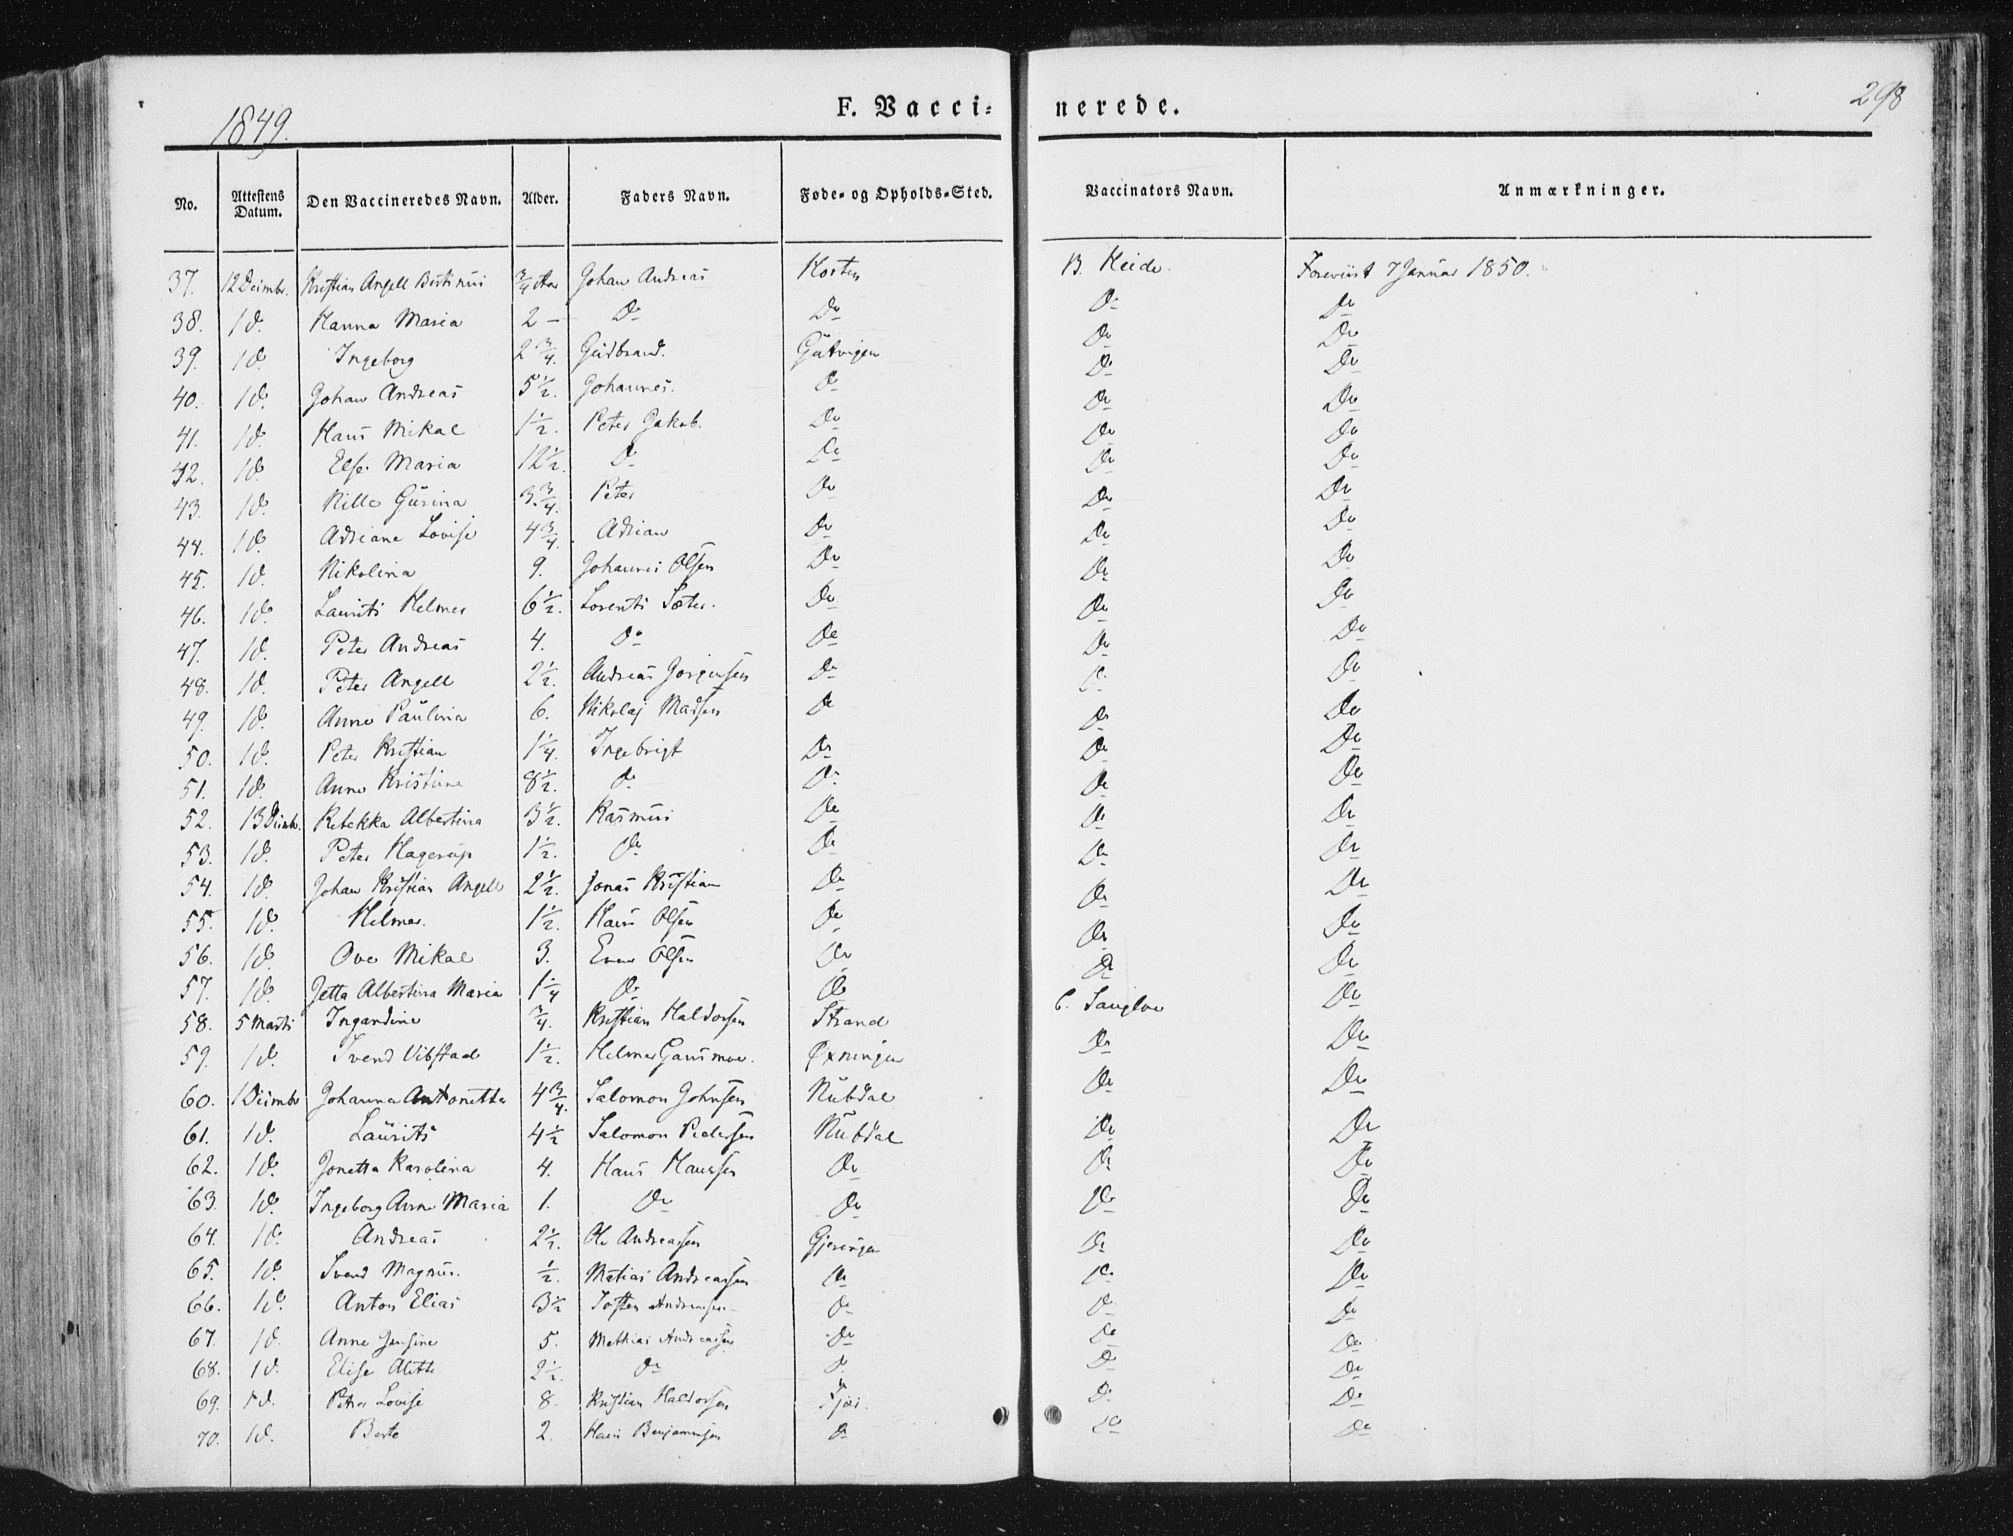 1849.
F. Vacci-
nerede.
298
No. Attestens Datum. Den Vaccineredes Navn. Alder. Faders Navn. Føde- og Opholds-Sted. Vaccinators Navn. Anmærkninger.
37. 12 Decimbr. Kristian Angell Bertinus 3/4 Aar Johan Andreas Kosten B. Heide. Foreviist 7 Januar 1850.
38. Id. Hanna Maria 2 - Do Do Do Do
39. Id. Ingeborg 2 3/4. Gudbrand. Gutvigen Do Do
40. Id. Johan Andreas 5 1/2. Johannes. Do Do Do
41. Id. Hans Mikal 1 1/2. Peter Jakob. Do Do Do
42. Id. Else Maria 12 1/2. Do Do Do Do
43. Id. Nille Gurina 3 3/4. Peter Do Do Do
44. Id. Adriane Lovise 4 3/4. Adrian Do Do Do
45. Id. Nikolina 9. Johannes Olsen Do Do Do
46. Id. Laurits Helmer 6 1/2. Lorents Sæter. Do Do Do
47. Id. Peter Andreas 4. Do Do Do Do
48. Id. Peter Angell 2 1/2. Andreas Jørgensen Do Do Do
49. Id. Anne Paulina 6. Nikolaj Madsen Do Do Do
50. Id. Peter Kristian 1 1/4. Ingebrigt Do Do Do
51. Id. Anne Kristine 8 1/2. Do Do Do Do
52. 13 Dcimbr. Rebekka Albertina 3 1/2. Rasmus Do Do Do
53. Id. Peter Hagerup 1 1/2. Do Do Do Do
54. Id. Johan Kristian Angell 2 1/2. Jonas Kristian Do Do Do
55. Id. Helmer. 1 1/2. Hans Olsen Do Do Do
56. Id. Ove Mikal 3. Even Olsen Do Do Do
57. Id. Jetta Albertina Maria 1 1/4 Do Do Do Do
58. 5 Marti Ingardine 3/4. Kristian Haldorsen Strand C. Saugloe Do
59. Id. Svend Vibstad 1 1/2. Helmer Gansmoe. Øxningen Do Do
60. 1 Decimbr Johanna Antonetta 4 3/4. Salomon Johnsen Nubdal Do Do
61. Id. Laurits 4 1/2 Salomon Pedersen Nubdal Do Do
62. Id. Jonetta Karolina 4. Hans Hansen Do Do Do
63. Id. Ingeborg Anne Maria 1. Do Do Do Do
64. Id. Andreas 2 1/2. Ole Andreassen Gjeringen Do Do
65. Id. Svend Magnus. 1/2. Matias Andreassen Do Do Do
66. Id. Anton Elias 3 1/2 Tosten Andreassen Do Do Do
67. Id. Anne Jensine 5. Mathias Andreassen Do Do Do
68. Id. Elise Alette 2 1/2. Do Do Do Do
69. Id. Petra Lovise 8. Kristian Haldorsen Do Do
70. Id. Berte 2. Hans Benjaminsen Do Do Do